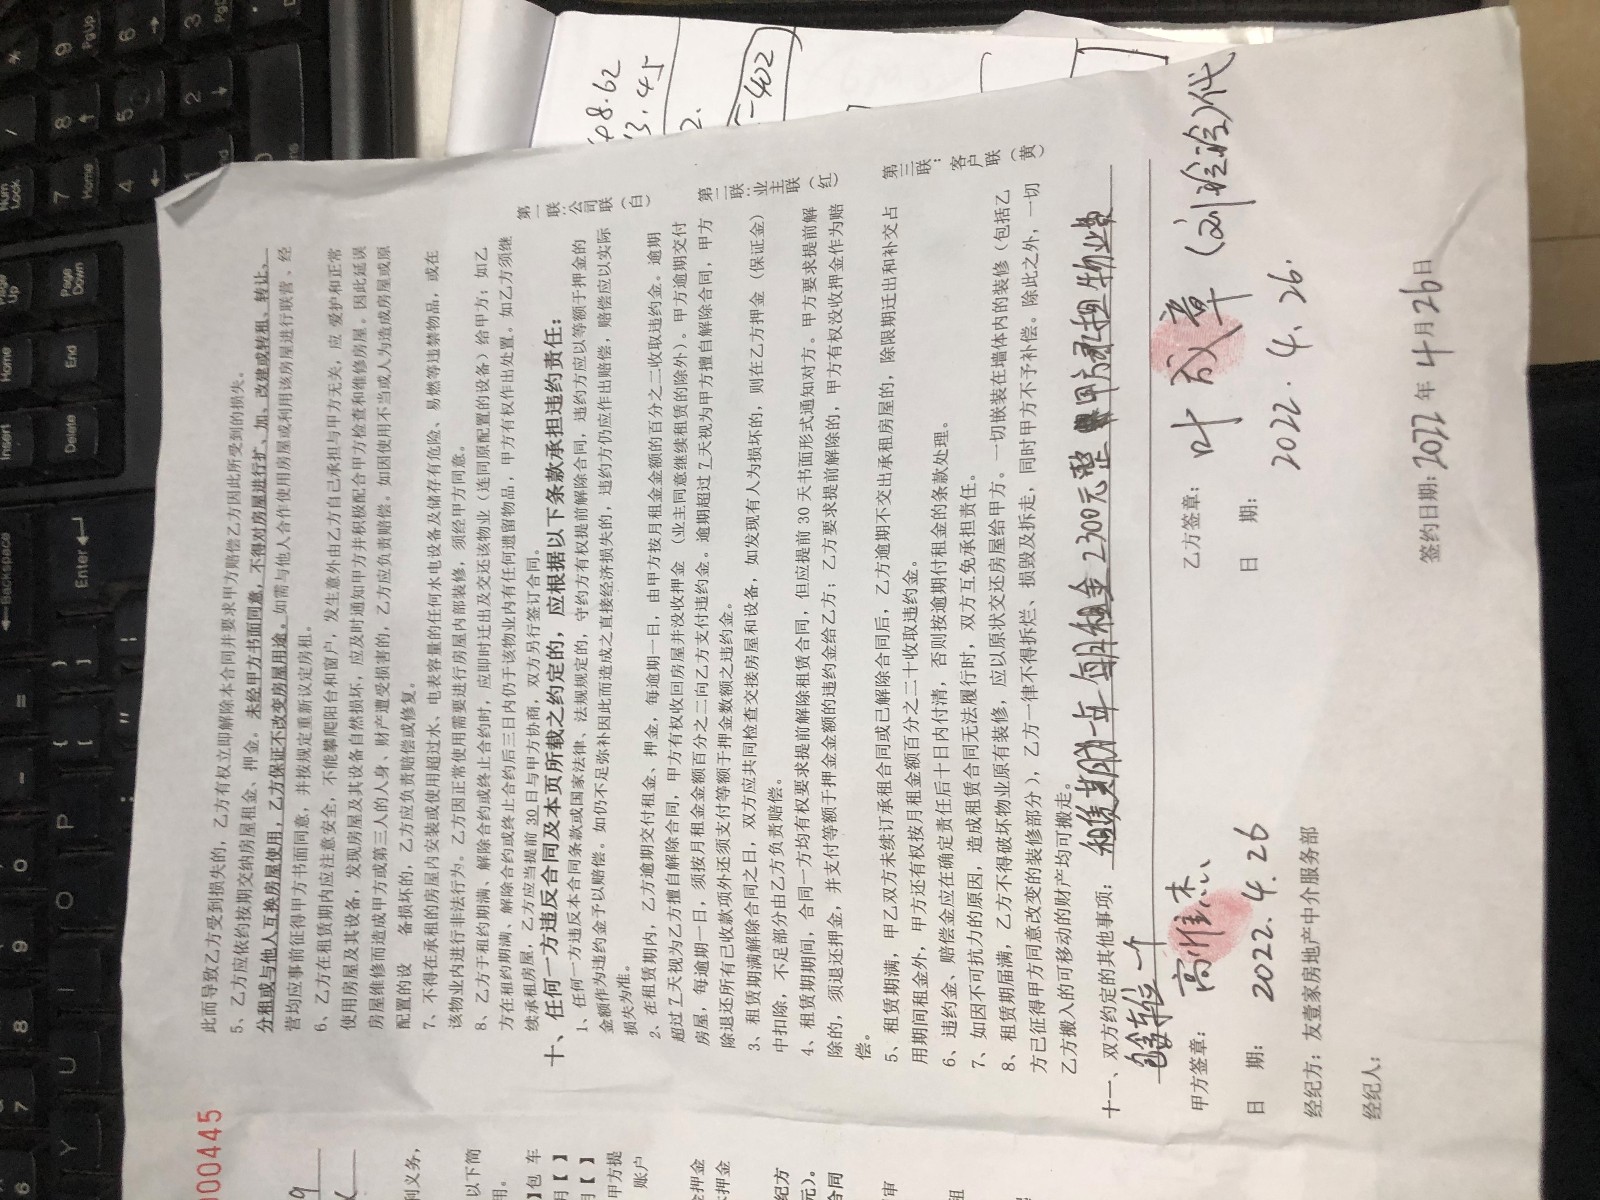 000445
此而导致乙方受到损失的，乙方有权立即解除本合同并要求甲方赔偿乙方因此所受到的损失。
5、乙方应依约按期交纳房屋租金、押金。未经甲方书面同意，不得对房屋进行扩、加、改建或转租、转让、
分租或与他人互换房屋使用，乙方保证不改变房屋用途。如需与他人合作使用房屋或利用该房屋进行联营、经
营均应事前征得甲方书面同意，并按规定重新议定房租。
6、乙方在租赁期内应注意安全，不能攀爬阳台和窗户，发生意外由乙方自己承担与甲方无关，应 爱护和正常
使用房屋及其设备，发现房屋及其设备自然损坏，应及时通知甲方并积极配合甲方检查和维修房屋。因此延误
房屋维修而造成甲方或第三人的人身、财产遭受损害的，乙方应负责赔偿。如因使用不当或人为造成房屋或原
配置的设 备损坏的，乙方应负责赔偿或修复。
7、不得在承租的房屋内安装或使用超过水、电表容量的任何水电设备及储存有危险、易燃等违禁物品，或在
该物业内进行非法行为。乙方因正常使用需要进行房屋内部装修，须经甲方同意。
8、乙方于租约期满、解除合约或终止合约时，应即时迁出及交还该物业（连同原配置的设备）给甲方；如乙
方在租约期满、解除合约或终止合约后三日内仍于该物业内有任何遗留物品，甲方有权作出处置。如乙方须继
续承租房屋，乙方应当提前 30 日与甲方协商，双方另行签订合同。
十、任何一方违反合同及本页所载之约定的，应根据以下条款承担违约责任：
1、任何一方违反本合同条款或国家法律、法规规定的，守约方有权提前解除合同，违约方应以等额于押金的
金额作为违约金予以赔偿。如仍不足弥补因此而造成之直接经济损失的，违约方仍应作出赔偿，赔偿应以实际
损失为准。
2、在租赁期内，乙方逾期交付租金、押金，每逾期一日，由甲方按月租金金额的百分之二收取违约金。逾期
超过 7 天视为乙方擅自解除合同，甲方有权收回房屋并没收押金（业主同意继续租赁的除外）。甲方逾期交付
房屋，每逾期一日，须按月租金金额百分之二向乙方支付违约金。逾期超过 7 天视为甲方擅自解除合同，甲方
除退还所有已收款项外还须支付等额于押金数额之违约金。
3、租赁期满解除合同之日，双方应共同检查交接房屋和设备，如发现有人为损坏的，则在乙方押金（保证金）
中扣除，不足部分由乙方负责赔偿。
4、租赁期期间，合同一方均有权要求提前解除租赁合同，但应提前 30 天书面形式通知对方。甲方要求提前解
除的，须退还押金，并支付等额于押金金额的违约金给乙方；乙方要求提前解除的，甲方有权没收押金作为赔
偿。
5、租赁期满，甲乙双方未续订承租合同或已解除合同后，乙方逾期不交出承租房屋的，除限期迁出和补交占
用期间租金外，甲方还有权按月租金额百分之二十收取违约金。
6、违约金、赔偿金应在确定责任后十日内付清，否则按逾期付租金的条款处理。
7、如因不可抗力的原因，造成租赁合同无法履行时，双方互免承担责任。
8、租赁期届满，乙方不得破坏物业原有装修，应以原状交还房屋给甲方。一切嵌装在墙体内的装修（包括乙
方已征得甲方同意改变的装修部分），乙方一律不得拆烂、损毁及拆走，同时甲方不予补偿。除此之外，一切
乙方搬入的可移动的财产均可搬走。
十一、双方约定的其他事项：租赁期一年每月租金2300元整 甲方承担物业费
包车位一个
甲方签章：高 乙方签章：叶成章（刘玲玲）代
日 期：2022.4.26 日 期：2022.4.26.
经纪方：友壹家房地产中介服务部
经纪人： 签约日期：2022 年 4 月 26 日
第一联：公司联（白）
第二联：业主联（红）
第三联：客户联（黄）
利义务，
以下简
用。
】包 车
月【 】
月【 】
甲方提
账户
押金
押金
纪方
元）。
合同
审
租
48.62
13.45
2.
-402
Backspace
Enter
Insert
Delete
Home
End
Page Up
Page Down
Num Lock
7 Home
8
9 PgUp
4
5
6
1
2
3
Y
U
I
O
P